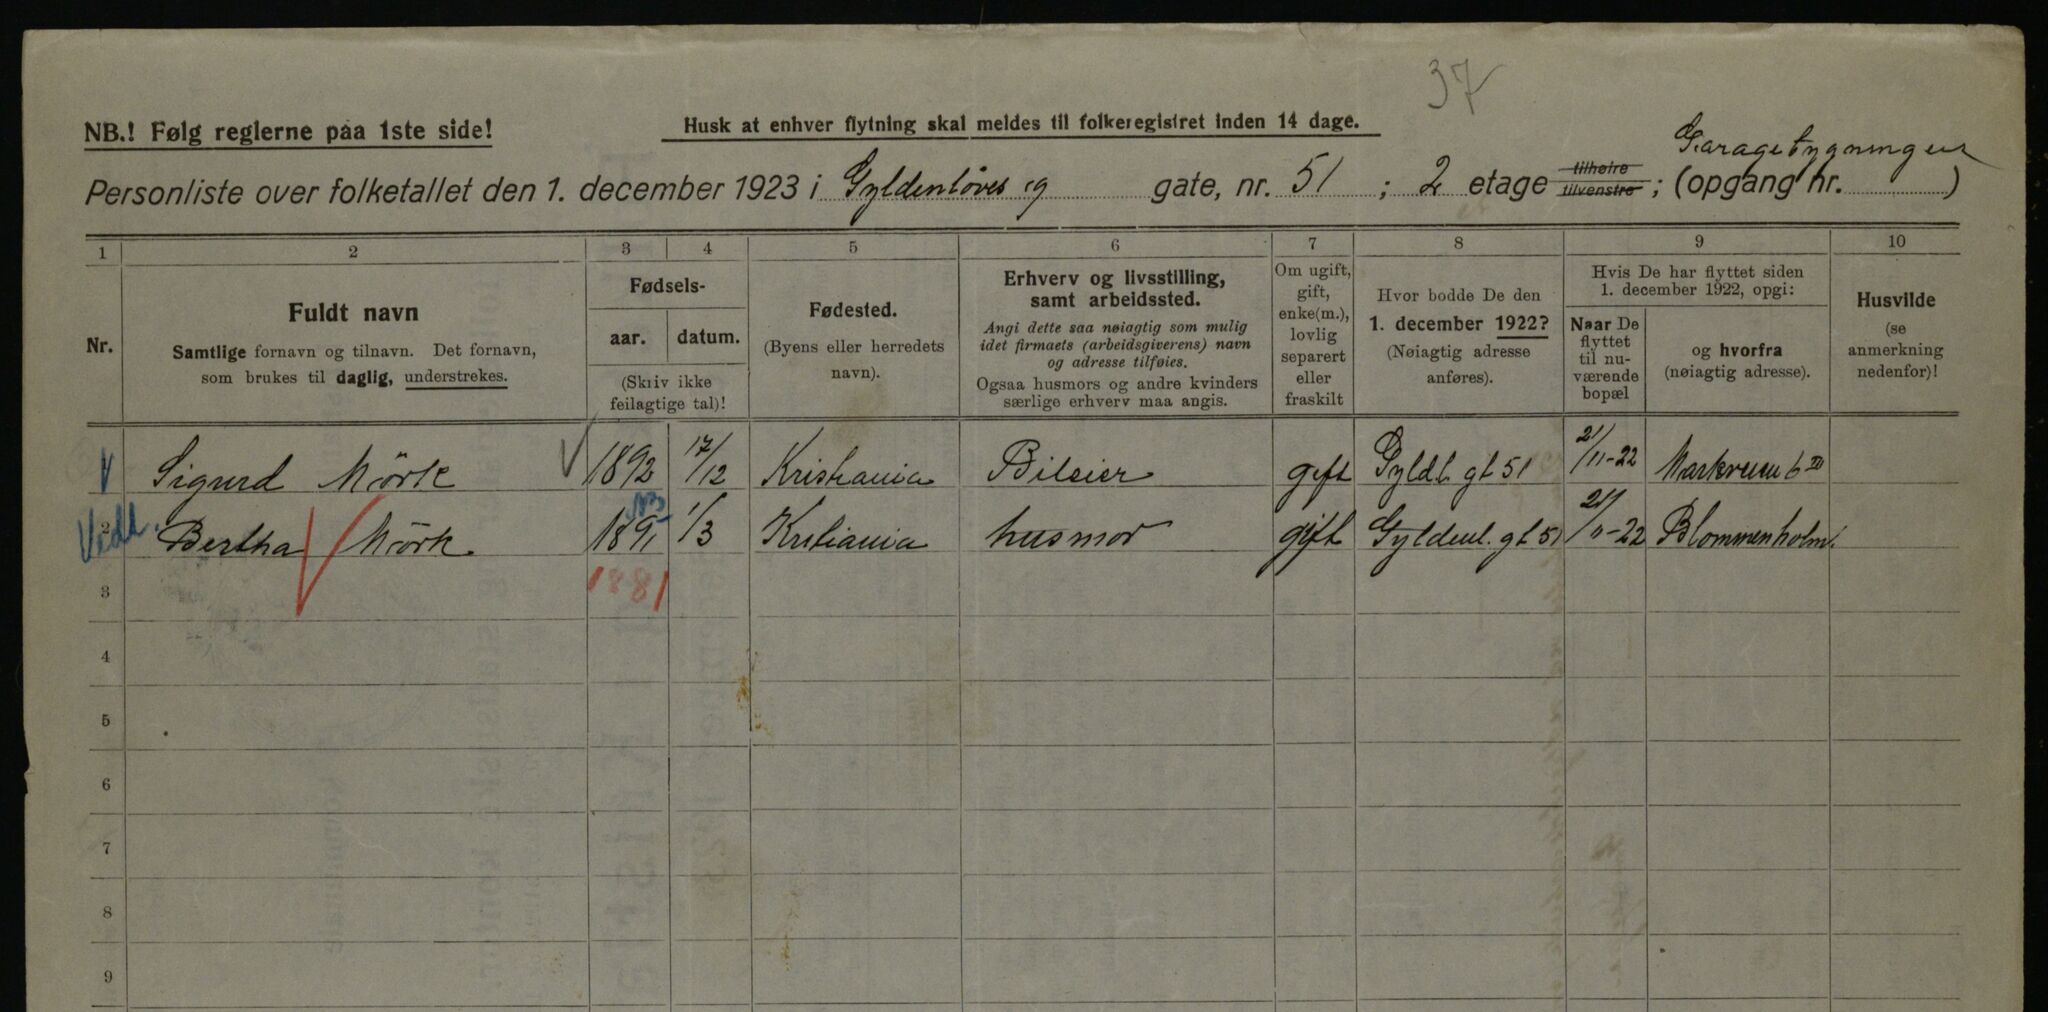 37
NB.! Følg reglerne paa 1ste side!
Husk at enhver flytning skal meldes til folkeregistret inden 14 dage.
Garagebygningen
Personliste over folketallet den 1. december 1923 i Gyldenløves g gate, nr. 51 ; 2 etage tilhøire tilvenstre ; (opgang nr. )
1 2 3 4 5 6 7 8 9 10
Nr.
Fuldt navn
Samtlige fornavn og tilnavn. Det fornavn,
som brukes til daglig, understrekes.
Fødsels-
aar. datum.
(Skriv ikke
feilagtige tal)!
Fødested.
(Byens eller herredets
navn).
Erhverv og livsstilling,
samt arbeidssted.
Angi dette saa nøiagtig som mulig
idet firmaets (arbeidsgiverens) navn
og adresse tilføies.
Ogsaa husmors og andre kvinders
særlige erhverv maa angis.
Om ugift,
gift,
enke(m.),
lovlig
separert
eller
fraskilt
Hvor bodde De den
1. december 1922?
(Nøiagtig adresse
anføres).
Hvis De har flyttet siden
1. december 1922, opgi:
Naar De
flyttet
til nu-
værende
bopæl
og hvorfra
(nøiagtig adresse).
Husvilde
(se
anmerkning
nedenfor)!
Sigurd Mörk 1892 17/12 Kristiania Bileier gift Gyldl. gt 51 21/11-22 6 III
2 Bertha Mörk 1891 1/3 Kristiania husmor gift Gyldenl. gt 51 21/11-22 Blommenholm.
3 1881
4
5
6
7
8
9